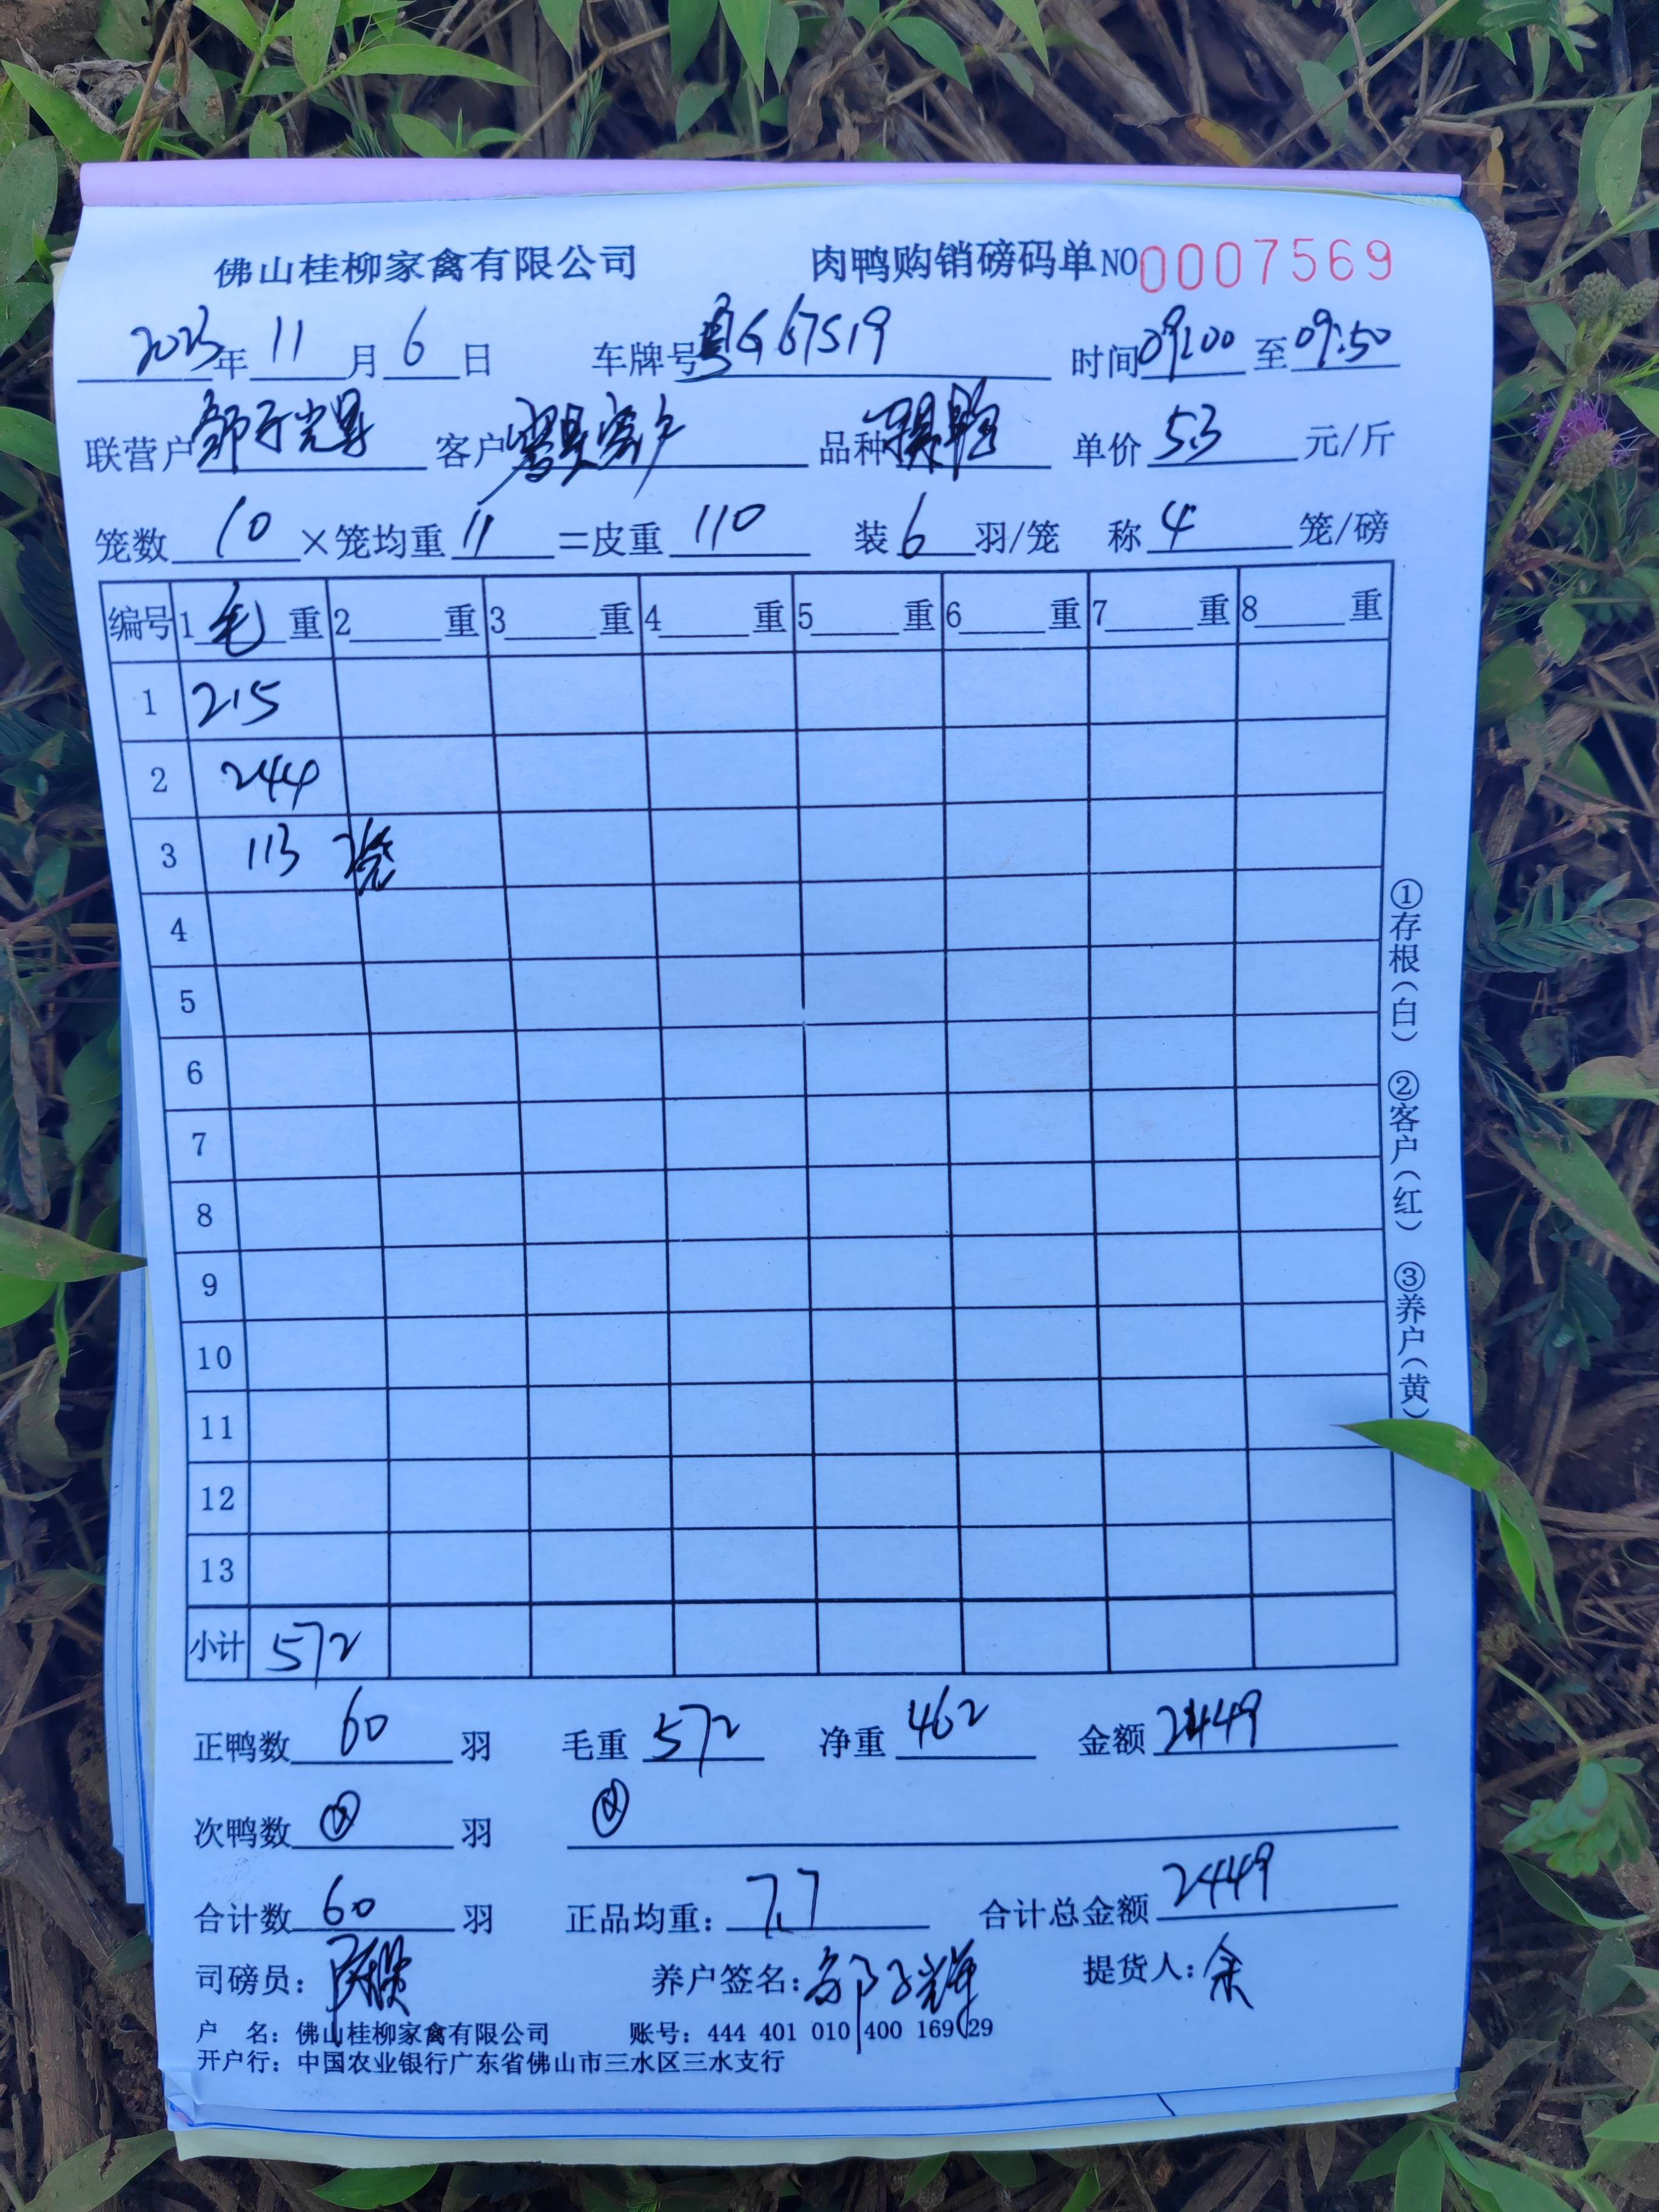 佛山桂柳家禽有限公司 肉鸭购销磅码单 NO 0007569
2023年 11 月 6 日 车牌号 粤G67519 时间 09:00 至 09:50
联营户 客户 品种 单价 5.3 元/斤
笼数 10 ×笼均重 11 =皮重 110 装 6 羽/笼 称 4 笼/磅
编号 1 毛 重 2 重 3 重 4 重 5 重 6 重 7 重 8 重
1 215
2 244
3 113 2笼
4
5
6
7
8
9
10
11
12
13
小计 572
正鸭数 60 羽 毛重 572 净重 462 金额 2449
次鸭数 羽
合计数 60 羽 正品均重: 7.7 合计总金额 2449
司磅员: 养户签名: 提货人: 余
户 名: 佛山桂柳家禽有限公司 账号: 444 401 010 400 169 29
开户行: 中国农业银行广东省佛山市三水区三水支行
①存根(白) ②客户(红) ③养户(黄)